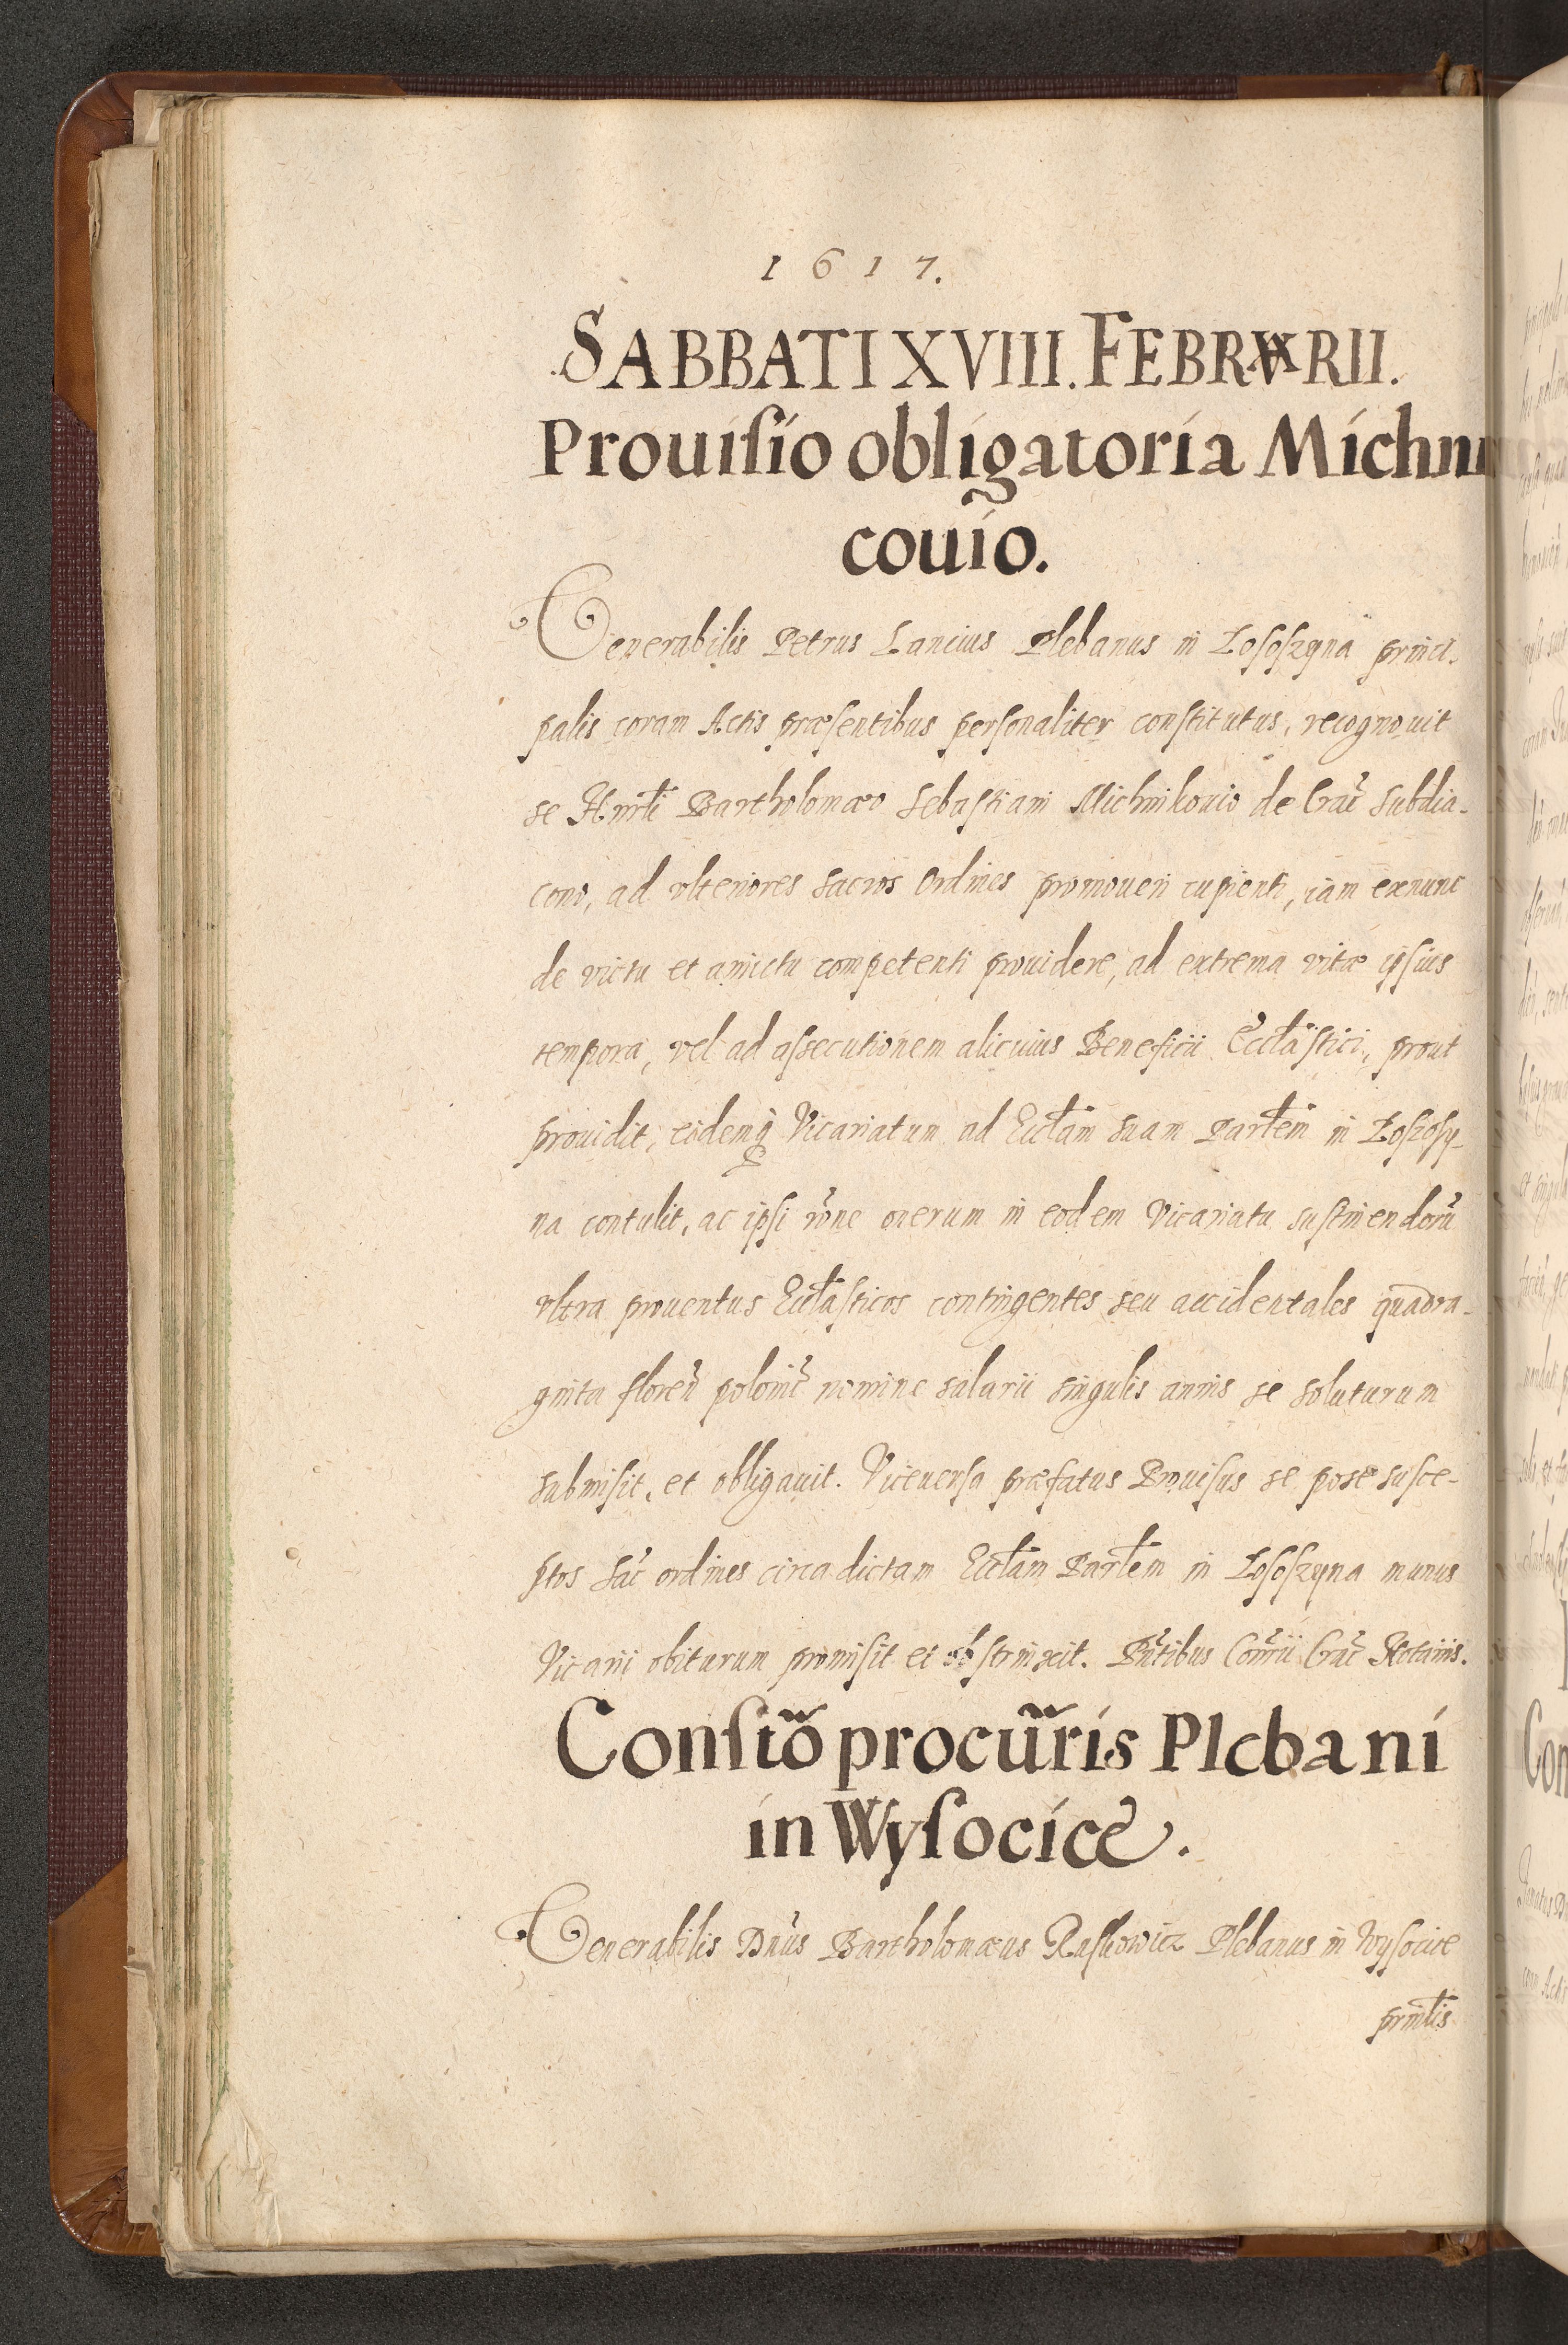 1617.
SABBATI XVIII. FEBRVARII.
Prouisio obligatoria Michni
couĩo.
Venerabilis Petrus Lancius Plebanus in Lososzyna princi-
palis coram Actis præsentibus personaliter constitutus, recognouit
se Hnrli Bartholomæo Sebastiani Michnikouio de Crac̃ Subdia-
cono, ad vlteriores sacros Ordines promoueri cupienti, iam exnunc
de victu et amictu competenti prouidere, ad extrema vitæ ipsius
tempora, vel ad assecutionem alicuius Beneficii Eccl̃astici, prout
prouidit, eidemq̃ Vicariatum ad Eccl̃am suam Parl̃em in Loszosy-
na contulit, ac ipsi rõne onerum in eodem Vicariatu sustinendorũ
vltra prouentus Eccl̃asticos contingentes seu accidentales quadra-
ginta floreñ polonic̃ nomine salarii singulis annis se soluturum
submisit, et obligauit. Viceuersa præfatus Prouisus se post susce-
ptos sac̃ ordines circa dictam Eccl̃am Parl̃em in Lososzyna munus
Vicarii obiturum promisit et obstrinxit. Pñtibus Coñrii Crac̃ Notariis.
Consitõ procũris Plebani
in Wysocice.
Venerabilis Dñus Bartholomæus Ruskowicz Plebanus in Wysocice
prinl̃is